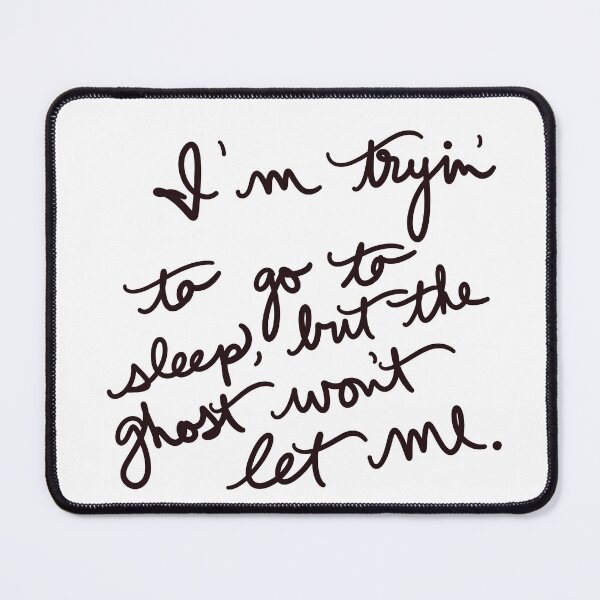 I'm tryin'
to go to
sleep, but the
ghost won't
let me.